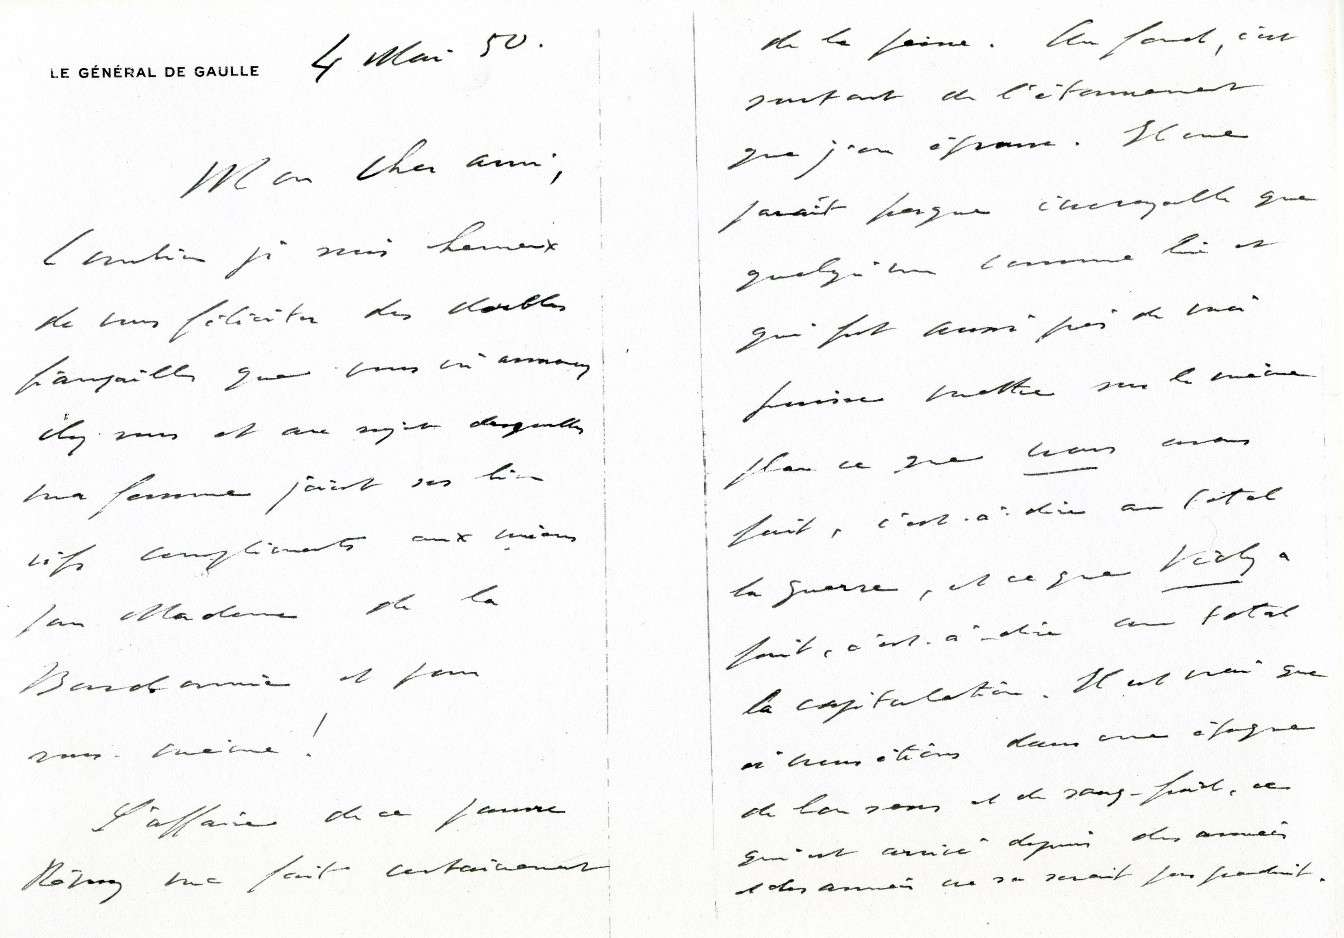 LE GÉNÉRAL DE GAULLE
4 Mai 50.
Mon cher ami,
Combien je suis heureux
de vous féliciter des doubles
fiançailles que vous m'annoncez
chez vous et au sujet desquelles
ma femme joint ses bien
vifs compliments aux miens
pour Madame de la
Bardonnie et pour
vous-même !
L'affaire de ce pauvre
Rémy me fait certainement
de la peine. Au fond, c'est
surtout de l'étonnement
que j'en éprouve. Il me
paraît presque incroyable que
quelqu'un comme lui et
qui fut aussi près de moi
puisse mettre sur le même
plan ce que nous avons
fait, c'est-à-dire au total
la guerre, et ce que Vichy a
fait, c'est-à-dire au total
la capitulation. Il est vrai que
si nous étions dans une époque
de bon sens et de sang-froid, ce
qui est arrivé depuis des années
et des années ne se serait pas produit.